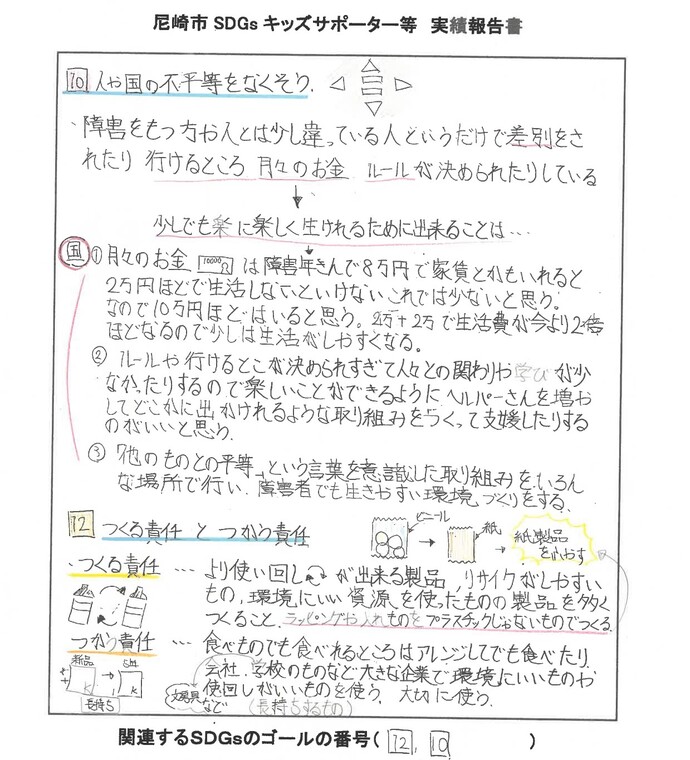 尼崎市 SDGs キッズサポーター等 実績報告書
10 人や国の不平等をなくそう.
・障害をもつ方や人とは少し違っている人というだけで差別をさ
れたり 行けるところ 月々のお金 ルールが決められたりしている
少しでも楽に楽しく生けれるために出来ることは…
国 ① 月々のお金 10000円 は障害年きんで8万円で家賃とかもいれると
2万円ほどで生活しないといけない これでは少ないと思う。
なので10万円ほどはいると思う。2万+2万で生活費が今より2倍
ほどなるので少しは生活がしやすくなる。
② ルールや行けるとこが決められすぎて人々との関わりや学びが少
なかったりするので楽しいことができるようにヘルパーさんを増や
してどこかに出かけれるような取り組みをつくって支援したりする
のがいいと思う.
③ 他のものとの平等 という言葉を意識した取り組みを、いろん
な場所で行い. 障害者でも生きやすい環境づくりをする.
12 つくる責任 と つかう責任
ビニール
紙
紙製品をふやす
・つくる責任 … より使い回しが出来る製品, リサイクルがしやすい
もの, 環境にいい資源を使ったものの製品を多く
つくること. ラッピングや入れものをプラスチックじゃないものでつくる.
つかう責任 … 食べものでも食べれるところはアレンジしてでも食べたり
会社. 学校のものなど大きな企業で環境にいいものか
使回しがいいものを使う. 大切に使う.
新品
長持ち
文房具など
(長持ちするもの)
関連するSDGsのゴールの番号( 12, 10 )